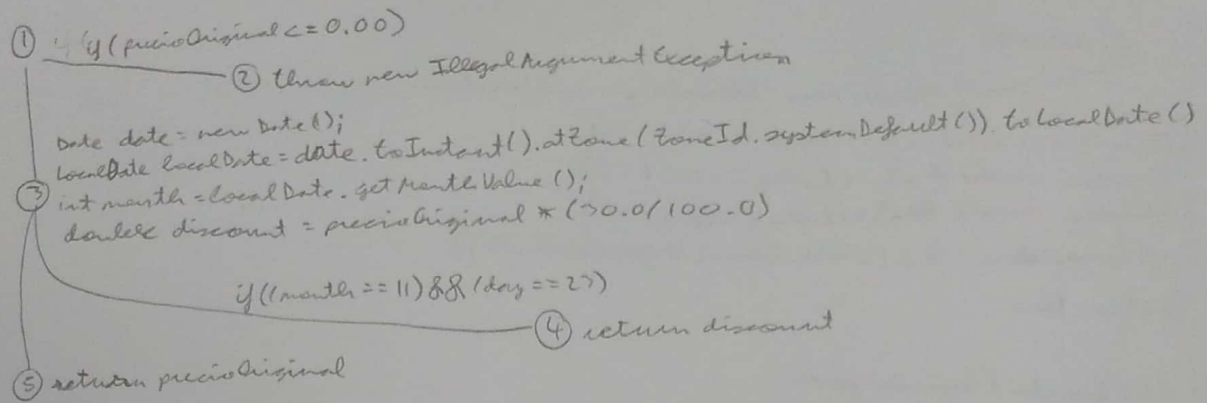 ① if (precioOriginal <= 0.00)
② throw new IllegalArgumentException
Date date = new Date();
LocalDate localDate = date.toInstant().atZone(ZoneId.systemDefault()).toLocalDate()
③ int month = localDate.getMonthValue();
double discount = precioOriginal * (70.0/100.0)
if((month == 11) && (day == 27))
④ return discount
⑤ return precioOriginal